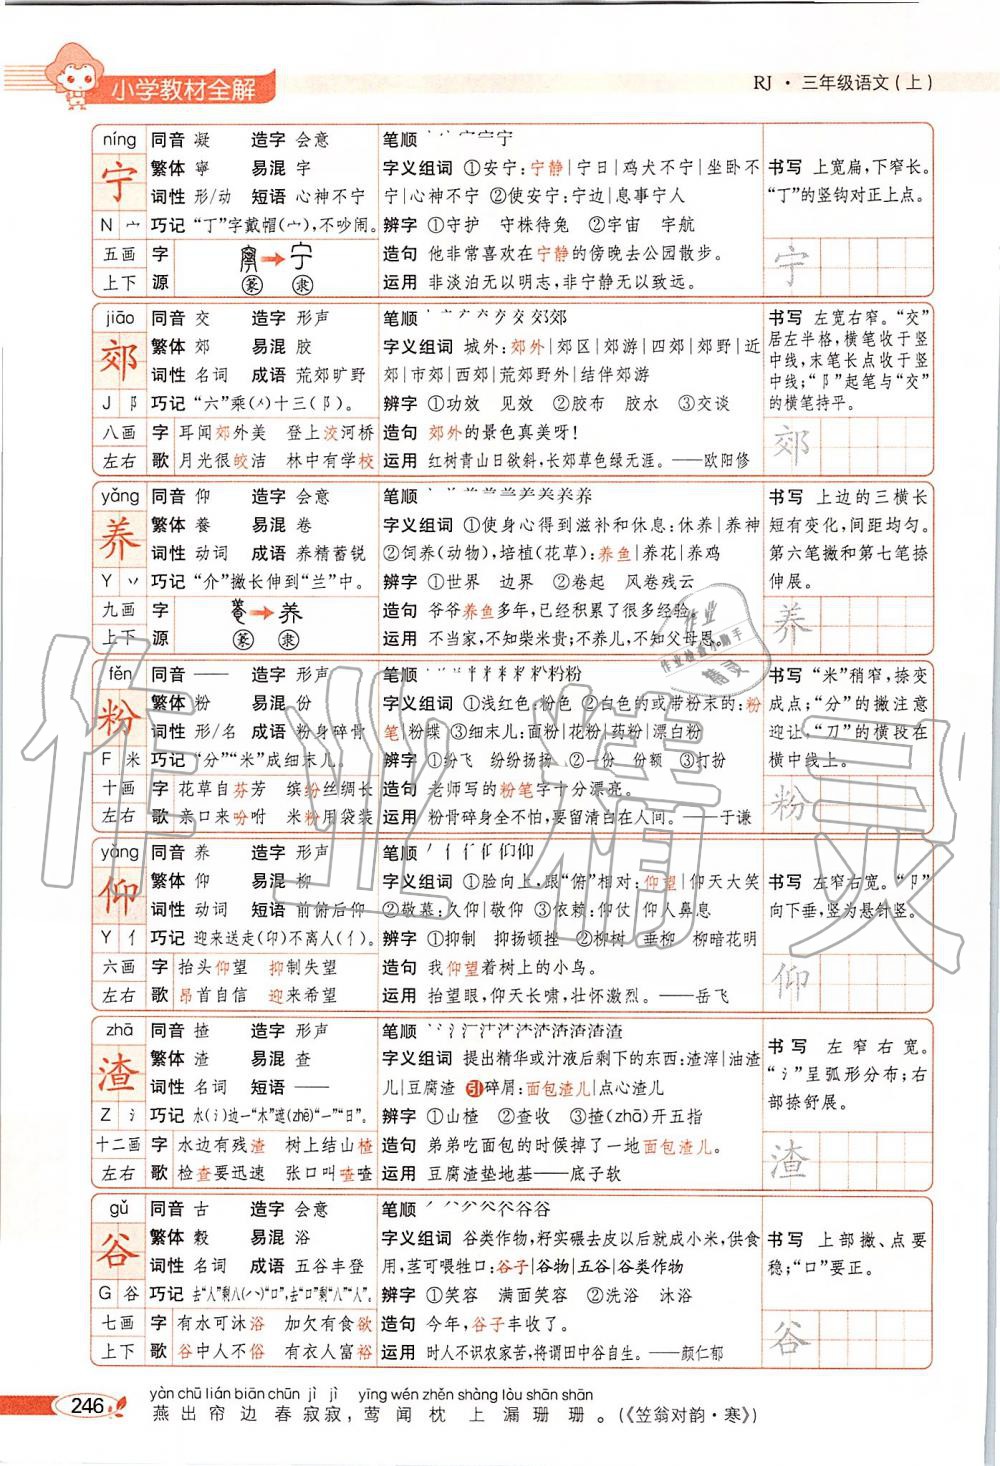 小学教材全解
RJ · 三年级语文(上)
níng 同音 凝 造字 会意 笔顺
宁 繁体 寧 易混 字 字义组词 ①安宁:宁静|宁日|鸡犬不宁|坐卧不
词性 形/动 短语 心神不宁 宁|心神不宁 ②使安宁:宁边|息事宁人
N 宀 巧记 “丁”字戴帽(宀),不吵闹。 辨字 ①守护 守株待兔 ②宇宙 宇航
五画 字 造句 他非常喜欢在宁静的傍晚去公园散步。
上下 源 篆 隶 运用 非淡泊无以明志,非宁静无以致远。
书写 上宽扁,下窄长。
“丁”的竖钩对正上点。
宁
jiāo 同音 交 造字 形声 笔顺
郊 繁体 郊 易混 胶 字义组词 城外:郊外|郊区|郊游|四郊|郊野|近
词性 名词 成语 荒郊旷野 郊|市郊|西郊|荒郊野外|结伴郊游
J 阝 巧记 “六”乘(㐅)十三(阝)。 辨字 ①功效 见效 ②胶布 胶水 ③交谈
八画 字 耳闻郊外美 登上洨河桥 造句 郊外的景色真美呀!
左右 歌 月光很皎洁 林中有学校 运用 红树青山日欲斜,长郊草色绿无涯。——欧阳修
书写 左宽右窄。“交”
居左半格,横笔收于竖
中线,末笔长点收于竖
中线;“阝”起笔与“交”
的横笔持平。
郊
yǎng 同音 仰 造字 会意 笔顺
养 繁体 養 易混 卷 字义组词 ①使身心得到滋补和休息:休养|养神
词性 动词 成语 养精蓄锐 ②饲养(动物),培植(花草):养鱼|养花|养鸡
Y 丷 巧记 “介”撇长伸到“兰”中。 辨字 ①世界 边界 ②卷起 风卷残云
九画 字 造句 爷爷养鱼多年,已经积累了很多经验。
上下 源 篆 隶 运用 不当家,不知柴米贵;不养儿,不知父母恩。
书写 上边的三横长
短有变化,间距均匀。
第六笔撇和第七笔捺
伸展。
养
fěn 同音 —— 造字 形声 笔顺
粉 繁体 粉 易混 份 字义组词 ①浅红色:粉色 ②白色的或带粉末的:粉
词性 形/名 成语 粉身碎骨 笔|粉蝶 ③细末儿:面粉|花粉|药粉|漂白粉
F 米 巧记 “分”“米”成细末儿。 辨字 ①纷飞 纷纷扬扬 ②一份 份额 ③打扮
十画 字 花草自芬芳 缤纷丝绸长 造句 老师写的粉笔字十分漂亮。
左右 歌 亲口来吩咐 米粉用袋装 运用 粉骨碎身全不怕,要留清白在人间。——于谦
书写 “米”稍窄,捺变
成点;“分”的撇注意
迎让,“刀”的横段在
横中线上。
粉
yǎng 同音 养 造字 形声 笔顺
仰 繁体 仰 易混 柳 字义组词 ①脸向上,跟“俯”相对:仰望|仰天大笑
词性 动词 短语 前俯后仰 ②敬慕:久仰|敬仰 ③依赖:仰仗 仰人鼻息
Y 亻 巧记 迎来送走(卬)不离人(亻)。 辨字 ①抑制 抑扬顿挫 ②柳树 垂柳 柳暗花明
六画 字 抬头仰望 抑制失望 造句 我仰望着树上的小鸟。
左右 歌 昂首自信 迎来希望 运用 抬望眼,仰天长啸,壮怀激烈。——岳飞
书写 左窄右宽。“卩”
向下垂,竖为悬针竖。
仰
zhā 同音 揸 造字 形声 笔顺
渣 繁体 渣 易混 查 字义组词 提出精华或汁液后剩下的东西:渣滓|油渣
词性 名词 短语 —— 儿|豆腐渣 引碎屑:面包渣儿|点心渣儿
Z 氵 巧记 水(氵)边一“木”遮(zhē)“一”“日”。 辨字 ①山楂 ②查收 ③揸(zhā)开五指
十二画 字 水边有残渣 树上结山楂 造句 弟弟吃面包的时候掉了一地面包渣儿。
左右 歌 检查要迅速 张口叫喳喳 运用 豆腐渣垫地基——底子软
书写 左窄右宽。
“氵”呈弧形分布;右
部捺舒展。
渣
gǔ 同音 古 造字 会意 笔顺
谷 繁体 穀 易混 浴 字义组词 谷类作物,籽实碾去皮以后就成小米,供食
词性 名词 成语 五谷丰登 用,茎可喂牲口:谷子|谷物|五谷|谷类作物
G 谷 巧记 去“人”剩八(八)“口”,去“口”剩“八”“人”。 辨字 ①笑容 满面笑容 ②洗浴 沐浴
七画 字 有水可沐浴 加欠有食欲 造句 今年,谷子丰收了。
上下 歌 谷中人不俗 有衣人富裕 运用 时人不识农家苦,将谓田中谷自生。——颜仁郁
书写 上部撇、点要
稳;“口”要正。
谷
246
yàn chū lián biān chūn jì jì yīng wén zhěn shàng lòu shān shān
燕出帘边春寂寂,莺闻枕上漏珊珊。(《笠翁对韵·寒》)
作业精灵